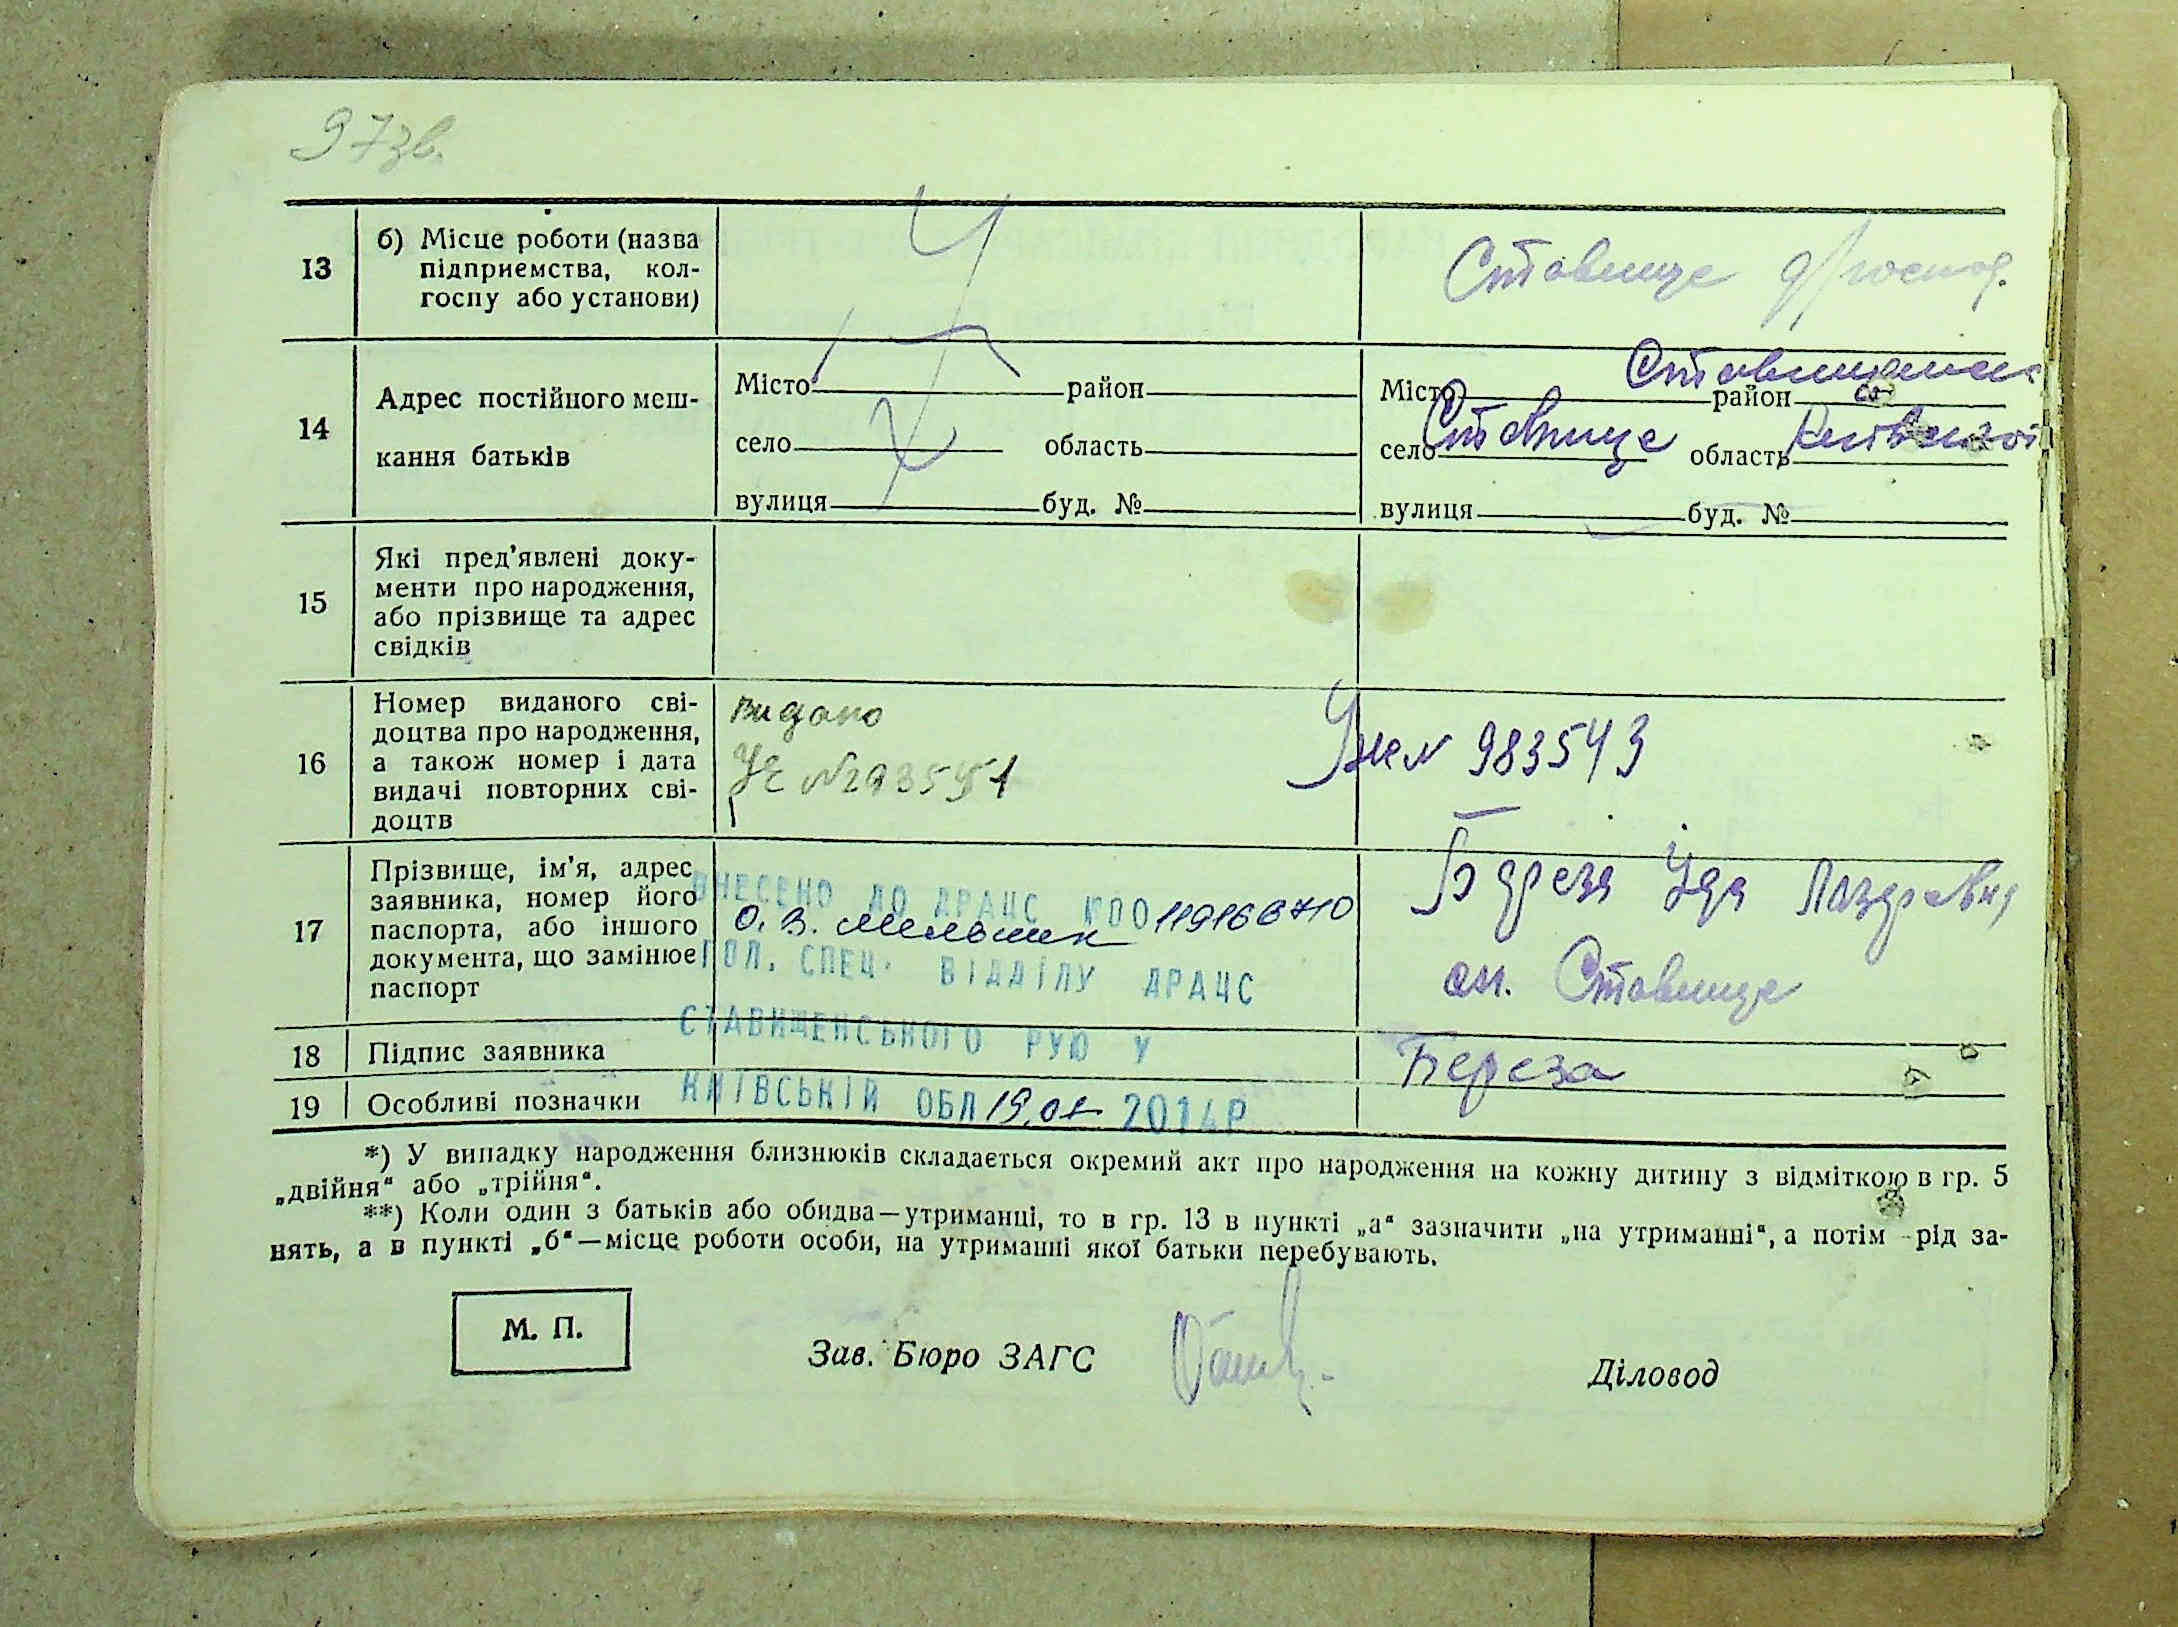 97зв.
13
б) Місце роботи (назва
підприємства, кол-
госпу або установи)
Ставище
14
Адрес постійного меш-
кання батьків
Місто район
село область
вулиця буд. №
Місто район
село Ставище область Київської
вулиця буд. №
15
Які пред’явлені доку-
менти про народження,
або прізвище та адрес
свідків
16
Номер виданого сві-
доцтва про народження,
а також номер і дата
видачі повторних сві-
доцтв
видано
№ 983543
17
Прізвище, ім’я, адрес
заявника, номер його
паспорта, або іншого
документа, що замінює
паспорт
ВНЕСЕНО ДО ДРАЦС
О. В. Мельник
ГОЛ. СПЕЦ. ВІДДІЛУ ДРАЦС
СТАВИЩЕНСЬКОГО РУЮ У
КИЇВСЬКІЙ ОБЛ 2014Р
Береза
см. Ставище
18
Підпис заявника
Береза
19
Особливі позначки
*) У випадку народження близнюків складається окремий акт про народження на кожну дитину з відміткою в гр. 5
„двійня“ або „трійня“.
**) Коли один з батьків або обидва—утриманці, то в гр. 13 в пункті „а“ зазначити „на утриманні“, а потім рід за-
нять, а в пункті „б“—місце роботи особи, на утриманні якої батьки перебувають.
М. П.
Зав. Бюро ЗАГС
Діловод